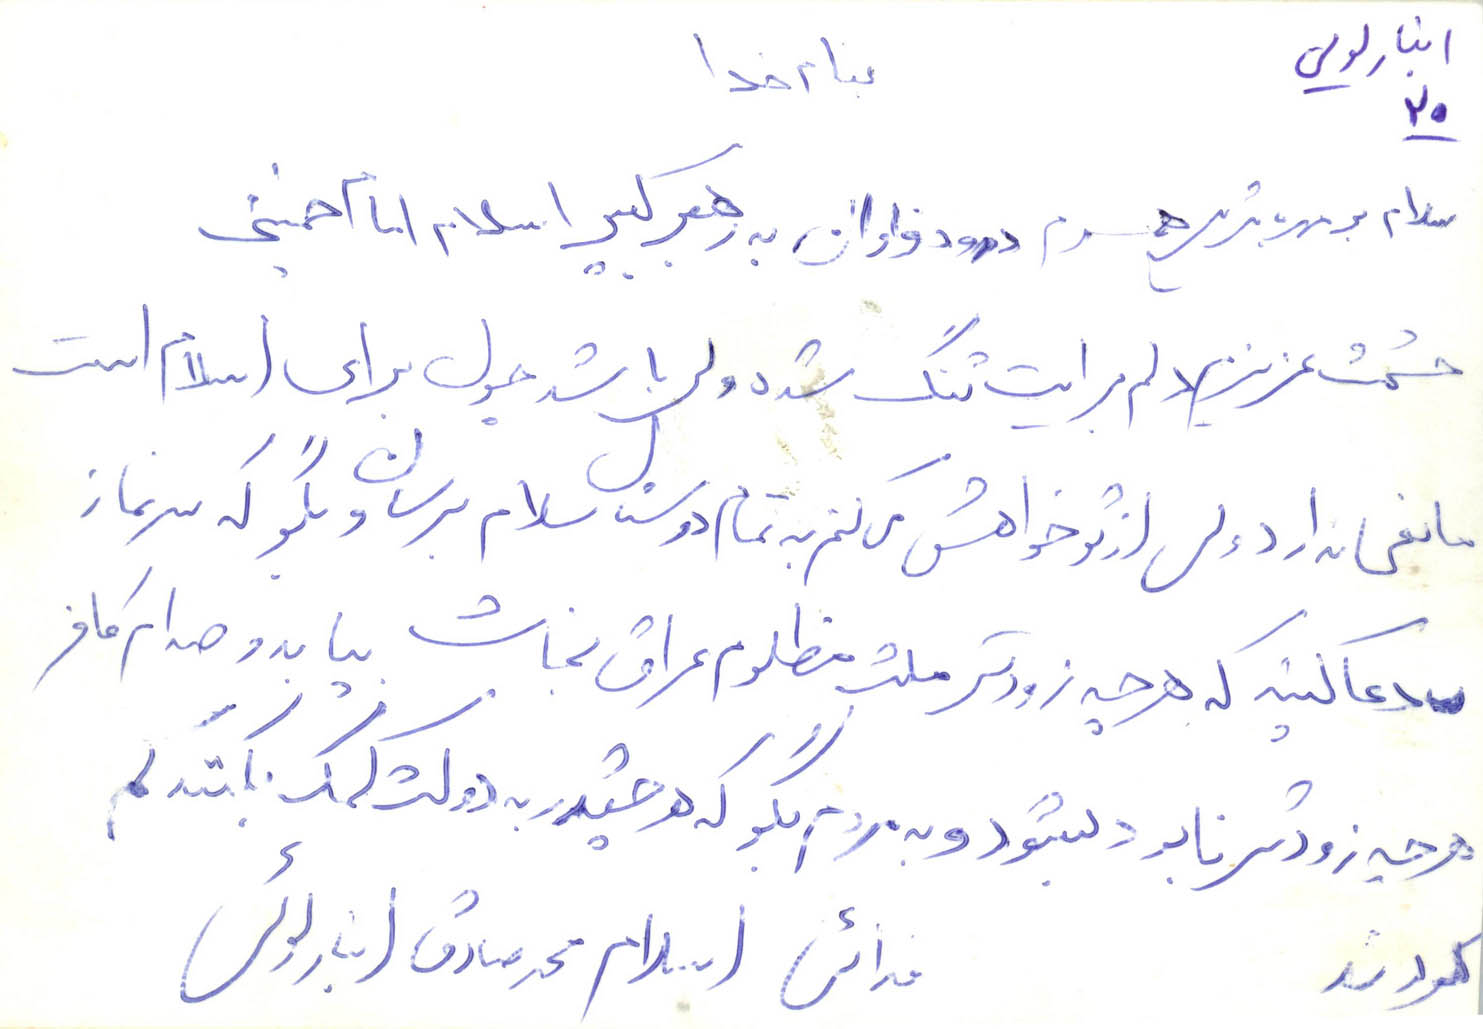 انبارلویی
۲۵
بنام خدا
سلام بر همسرم درود فراوان به رهبر کبیر اسلام امام خمینی
حشمت عزیزم دلم برایت تنگ شده ولی باشد چون برای اسلام است
مانعی ندارد ولی از تو خواهش می کنم به تمام دوستان سلام برسان و بگو که سر نماز
دعا کنید که هر چه زودتر ملت مظلوم عراق نجات بیابد و صدام کافر
هر چه زودتر نابود بشود و به مردم بگو که هر چقدر به دولت کمک بکنند کم
کردند
فدائی اسلام محمد صادق انبارلوئی